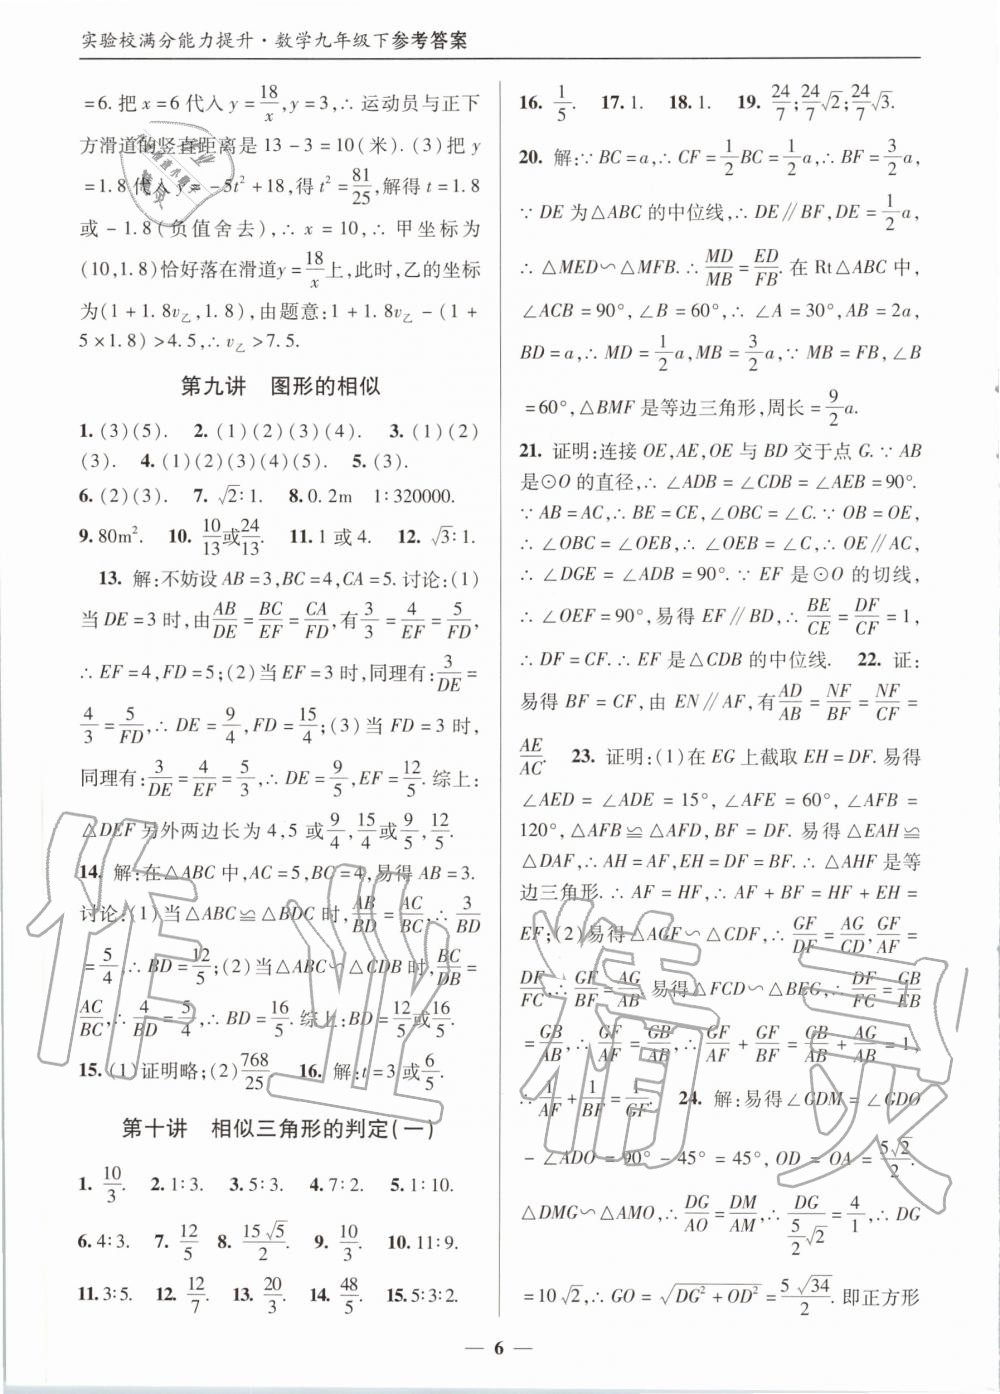 实验校满分能力提升·数学九年级下参考答案
=6.把 x=6 代入 y=18/x,y=3,∴运动员与正下
方滑道的竖直距离是 13-3=10(米).(3)把 y
=1.8 代入 y=-5t²+18,得 t²=81/25,解得 t=1.8
或-1.8(负值舍去),∴x=10,∴甲坐标为
(10,1.8)恰好落在滑道y=18/x上,此时,乙的坐标
为(1+1.8v乙,1.8),由题意:1+1.8v乙-(1+
5×1.8)>4.5,∴v乙>7.5.
第九讲 图形的相似
1.(3)(5). 2.(1)(2)(3)(4). 3.(1)(2)
(3). 4.(1)(2)(3)(4)(5). 5.(3).
6.(2)(3). 7.√2∶1. 8.0.2m 1∶320000.
9.80m². 10. 10/13或24/13. 11.1 或 4. 12. √3∶1.
13. 解:不妨设 AB=3,BC=4,CA=5.讨论:(1)
当 DE=3 时,由AB/DE=BC/EF=CA/FD,有3/3=4/EF=5/FD,
∴EF=4,FD=5;(2)当 EF=3 时,同理有:3/DE=
4/3=5/FD,∴DE=9/4,FD=15/4;(3)当 FD=3 时,
同理有:3/DE=4/EF=5/3,∴DE=9/5,EF=12/5.综上:
△DEF 另外两边长为 4,5 或9/4,15/4或9/5,12/5.
14. 解:在△ABC 中,AC=5,BC=4,易得 AB=3.
讨论:(1)当△ABC≌△BDC 时,AB/BD=AC/BC,∴3/BD
=5/4,∴BD=12/5;(2)当△ABC∽△CDB 时,BC/DB=
AC/BC,∴4/BD=5/4,∴BD=16/5.综上:BD=12/5或16/5.
15.(1)证明略;(2)768/25 16. 解:t=3或6/5.
第十讲 相似三角形的判定(一)
1. 10/3. 2.1∶3. 3.5∶3. 4.7∶2. 5.1∶10.
6.4∶3. 7. 12/5 8. 15√5/2. 9. 10/3. 10.11∶9.
11.3∶5. 12. 12/7. 13. 20/3. 14. 48/5. 15.5∶3∶2.
16. 1/5. 17.1. 18.1. 19. 24/7;24/7√2;24/7√3.
20. 解:∵BC=a,∴CF=1/2BC=1/2a,∴BF=3/2a,
∵DE 为△ABC 的中位线,∴DE∥BF,DE=1/2a,
∴△MED∽△MFB.∴MD/MB=ED/FB.在 Rt△ABC 中,
∠ACB=90°,∠B=60°,∴∠A=30°,AB=2a,
BD=a,∴MD=1/2a,MB=3/2a,∵MB=FB,∠B
=60°,△BMF 是等边三角形,周长=9/2a.
21. 证明:连接 OE,AE,OE 与 BD 交于点 G.∵AB
是⊙O 的直径,∴∠ADB=∠CDB=∠AEB=90°.
∵AB=AC,∴BE=CE,∠OBC=∠C.∵OB=OE,
∴∠OBC=∠OEB,∴∠OEB=∠C,∴OE∥AC,
∴∠DGE=∠ADB=90°.∵EF 是⊙O 的切线,
∴∠OEF=90°,易得 EF∥BD,∴BE/CE=DF/CF=1,
∴DF=CF.∴EF 是△CDB 的中位线. 22. 证:
易得 BF=CF,由 EN∥AF,有AD/AB=NF/BF=NF/CF=
AE/AC. 23. 证明:(1)在 EG 上截取 EH=DF.易得
∠AED=∠ADE=15°,∠AFE=60°,∠AFB=
120°,△AFB≌△AFD,BF=DF.易得△EAH≌
△DAF,∴AH=AF,EH=DF=BF.∴△AHF 是等
边三角形.∴AF=HF,∴AF+BF=HF+EH=
EF;(2)易得△AGF∽△CDF,∴GF/DF=AG/CD,GF/AF=
DF/FC,∴GF/BF=AG/AB.易得△FCD∽△BEG,∴DF/FC=GB/EB
=GB/AB,∴GF/AF=GB/AB,∴GF/AF+GF/BF=GB/AB+AG/AB=1,
∴1/AF+1/BF=1/GF. 24. 解:易得∠CDM=∠CDO
-∠ADO=90°-45°=45°,OD=OA=5√2/2.
△DMG∽△AMO,∴DG/AO=DM/AM,∴DG/(5/2√2)=4/1,∴DG
=10√2,∴GO=√(DG²+OD²)=5√34/2.即正方形
— 6 —
作业精灵